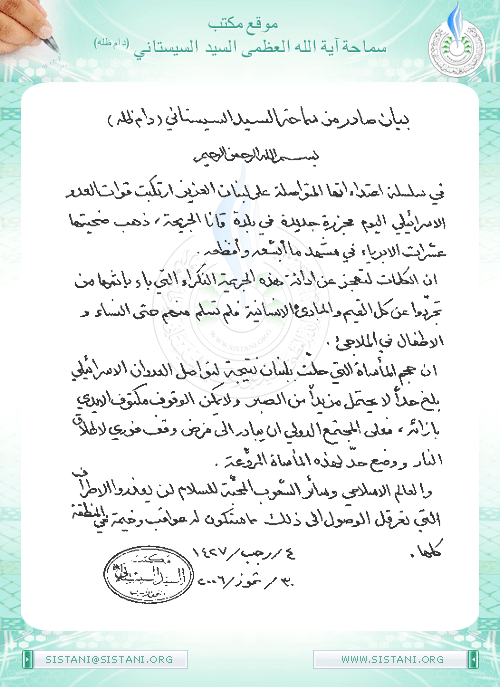 موقع مكتب
سماحة آية الله العظمى السيد السيستاني (دام ظله)
بيان صادر من سماحة السيد السيستاني (دام ظله)
بسم الله الرحمن الرحيم
في سلسلة اعتداءاتها المتواصلة على لبنان العزيز ارتكبت قوات العدو
الاسرائيلي اليوم مجزرة جديدة في بلدة قانا الجريحة، ذهب ضحيتها
عشرات الابرياء في مشهد ما أبشعه وأفظعه.
ان الكلمات لتعجز عن ادانة هذه الجريمة النكراء التي باء بإثمها من
تجردوا عن كل القيم والمبادئ الانسانية فلم تسلم منهم حتى النساء و
الاطفال في الملاجئ!.
ان حجم المأساة التي حلّت بلبنان نتيجة لتواصل العدوان الاسرائيلي
بلغ حداً لا يحتمل مزيداً من الصبر ولا يمكن الوقوف مكتوف الايدي
بازائه، فعلى المجتمع الدولي ان يبادر الى فرض وقف فوري لاطلاق
النار ووضع حدّ لهذه المأساة المروّعة.
والعالم الاسلامي وسائر الشعوب المحبّة للسلام لن يعذروا الاطراف
التي تعرقل الوصول الى ذلك ما ستكون له عواقب وخيمة في المنطقة
كلها.
٤/رجب/١٤٢٧
٣٠/تموز/٢٠٠٦
مكتب
السيد السيستاني
SISTANI@SISTANI.ORG
WWW.SISTANI.ORG